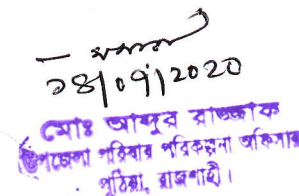 08/09/2020
মোঃ আব্দুর রাজ্জাক
উপজেলা পরিবার পরিকল্পনা অফিসার
পুঠিয়া, রাজশাহী।